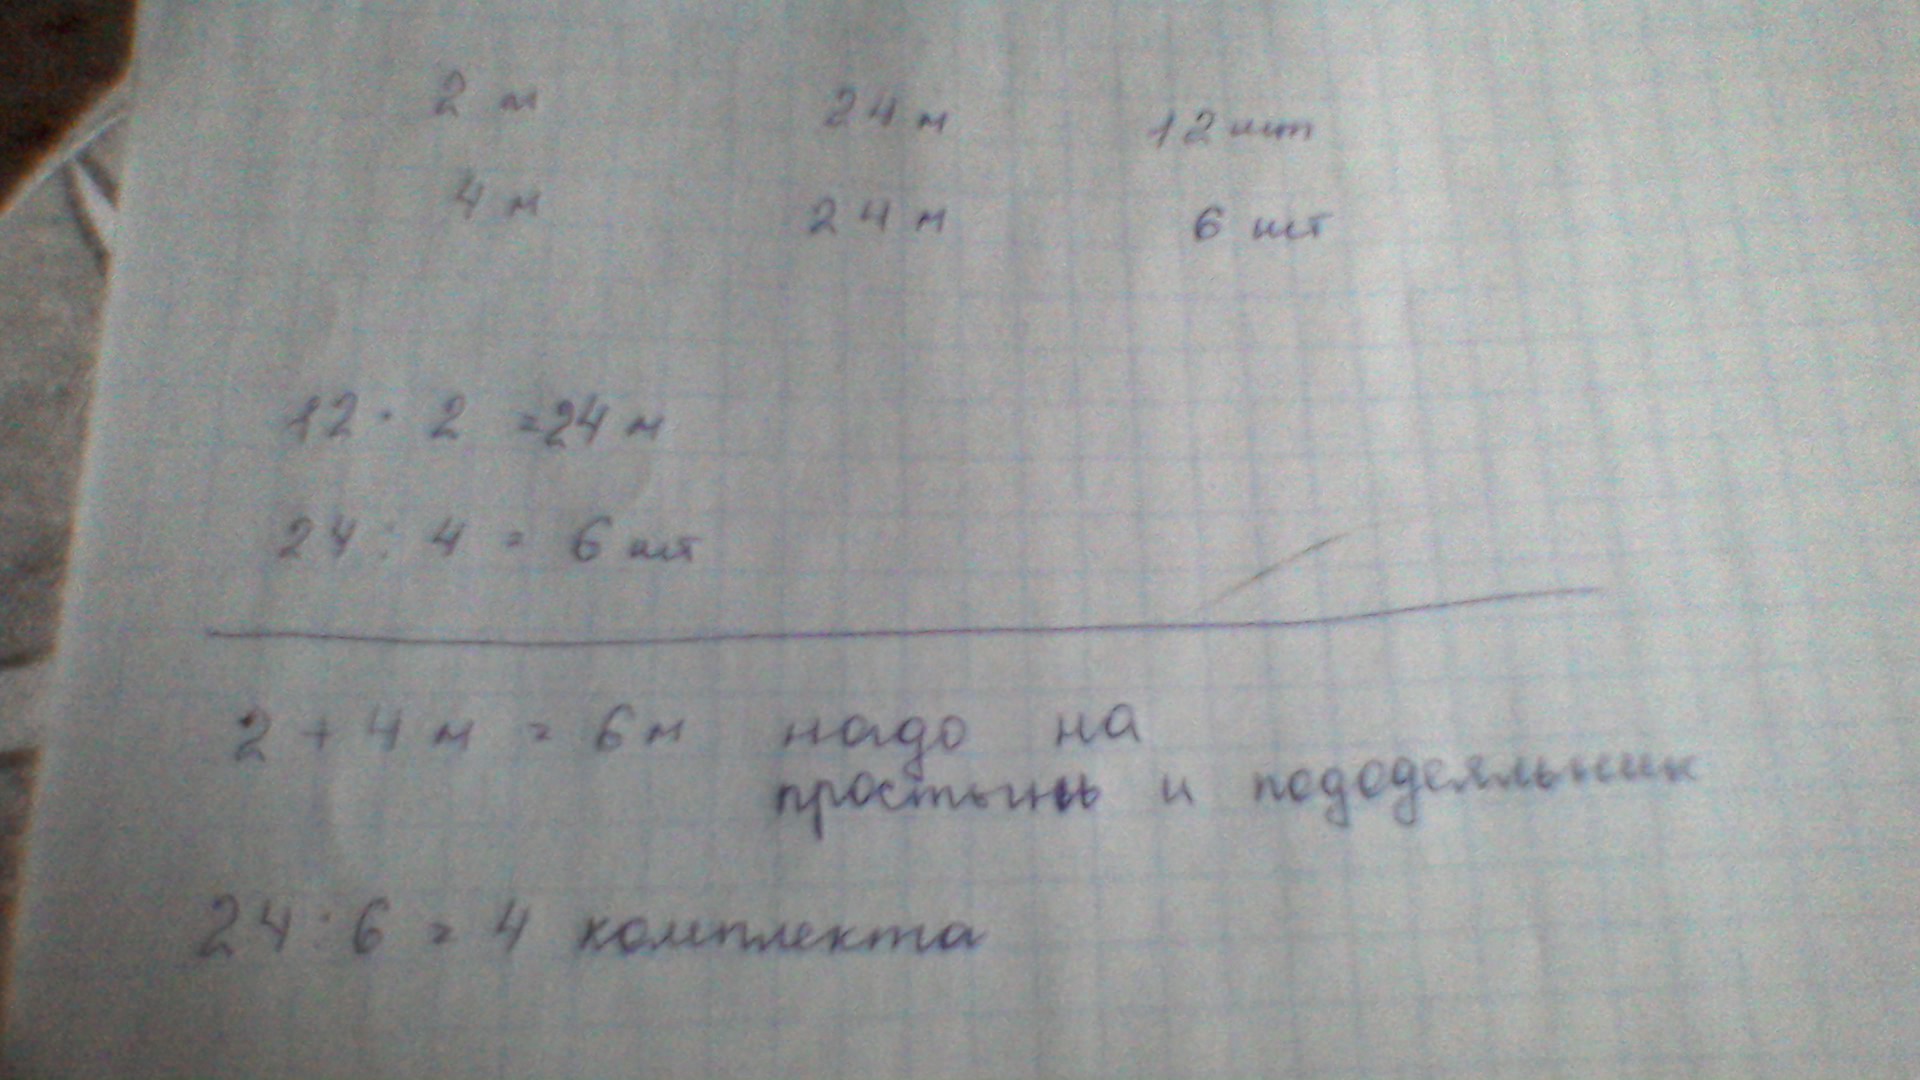 2 м 24 м 12 шт
4 м 24 м 6 шт
12 · 2 = 24 м
24 : 4 = 6 шт
2 + 4 м = 6 м надо на
простынь и пододеяльник
24 : 6 = 4 комплекта